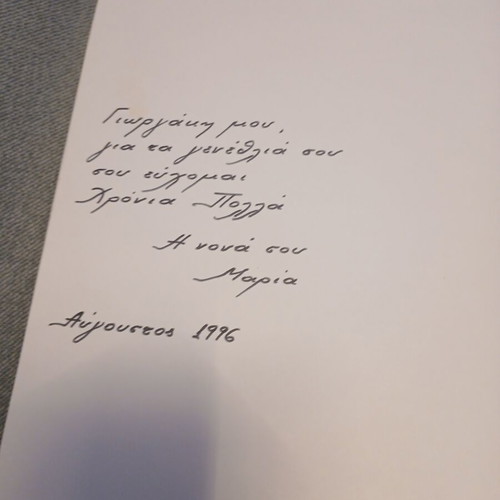 Γιωργάκη μου,
για τα γενέθλιά σου
σου εύχομαι
Χρόνια Πολλά
Η νονά σου
Μαρία
Αύγουστος 1996